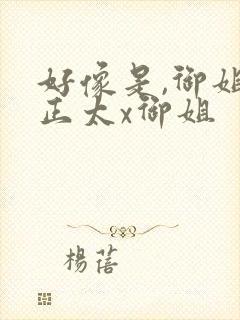 好像是,御姐
正太x御姐
楊蓓